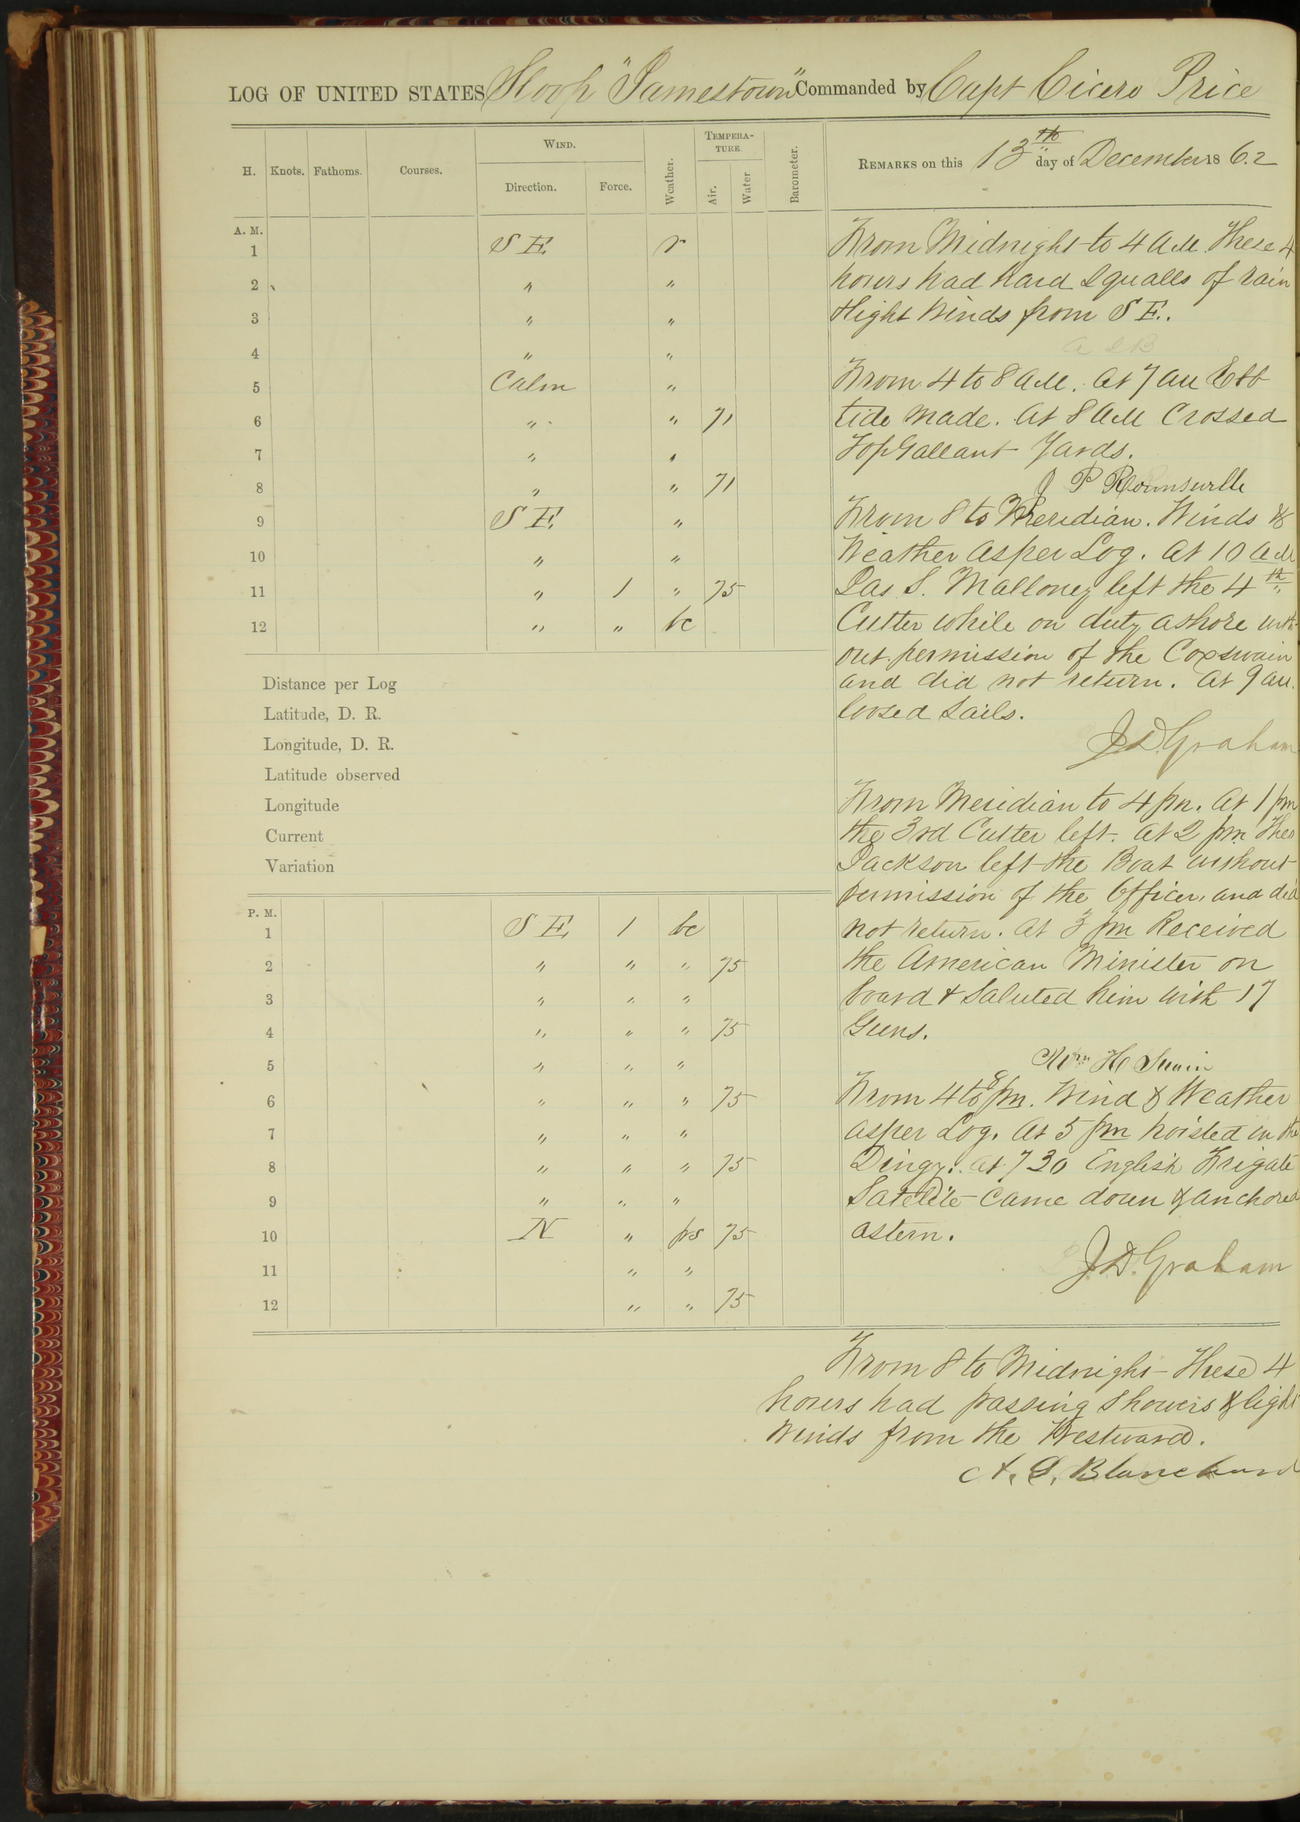 LOG OF UNITED STATES Sloop "Jamestown" Commanded by Capt Cicero Price
H. Knots. Fathoms. Courses. WIND. Direction. Force. Weather. TEMPERATURE. Air. Water Barometer.
REMARKS on this 13th day of December 1862
A. M.
1 S E r
2 " "
3 " "
4 " "
5 Calm "
6 " " 71
7 " "
8 " " 71
9 S E "
10 " "
11 " 1 " 75
12 " " bc
Distance per Log
Latitude, D. R.
Longitude, D. R.
Latitude observed
Longitude
Current
Variation
P. M.
1 S E 1 bc
2 " " " 75
3 " " "
4 " " " 75
5 " " "
6 " " " 75
7 " " "
8 " " " 75
9 " " "
10 N " ps 75
11 " "
12 " " 75
From Midnight to 4 AM These 4
hours had hard Squalls of rain
& light Winds from S E.
A S B
From 4 to 8 AM. At 7 AM Ebb
tide made. At 8 AM Crossed
TopGallant Yards.
J P
From 8 to Meridian. Winds &
Weather as per Log. At 10 AM
Jas S. Malloney left the 4th
Cutter while on duty ashore with-
out permission of the Coxswain
and did not return. At 9 AM.
loosed Sails.
J D. Graham
From Meridian to 4 pm. At 1 pm
the 3rd Cutter left. At 2 pm Theo
Jackson left the Boat without
permission of the Officer, and did
not return. At 3 pm Received
the American Minister on
board & Saluted him with 17
Guns.
Wm H
From 4 to 8 pm. Wind & Weather
as per Log. At 5 pm hoisted in the
Dingy. At 7 30 English Frigate
"Satelite" came down & anchored
astern.
J. D. Graham
From 8 to Midnight These 4
hours had passing Showers & light
Winds from the Westward.
A. S. Blanchard